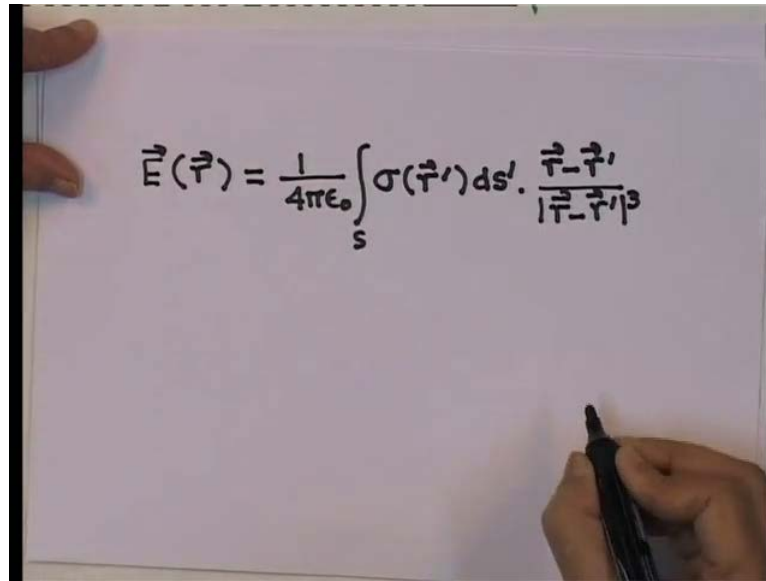 $\vec{E}(\vec{r}) = \frac{1}{4\pi\epsilon_0} \int_S \sigma(\vec{r}') ds' \cdot \frac{\vec{r} - \vec{r}'}{|\vec{r} - \vec{r}'|^3}$